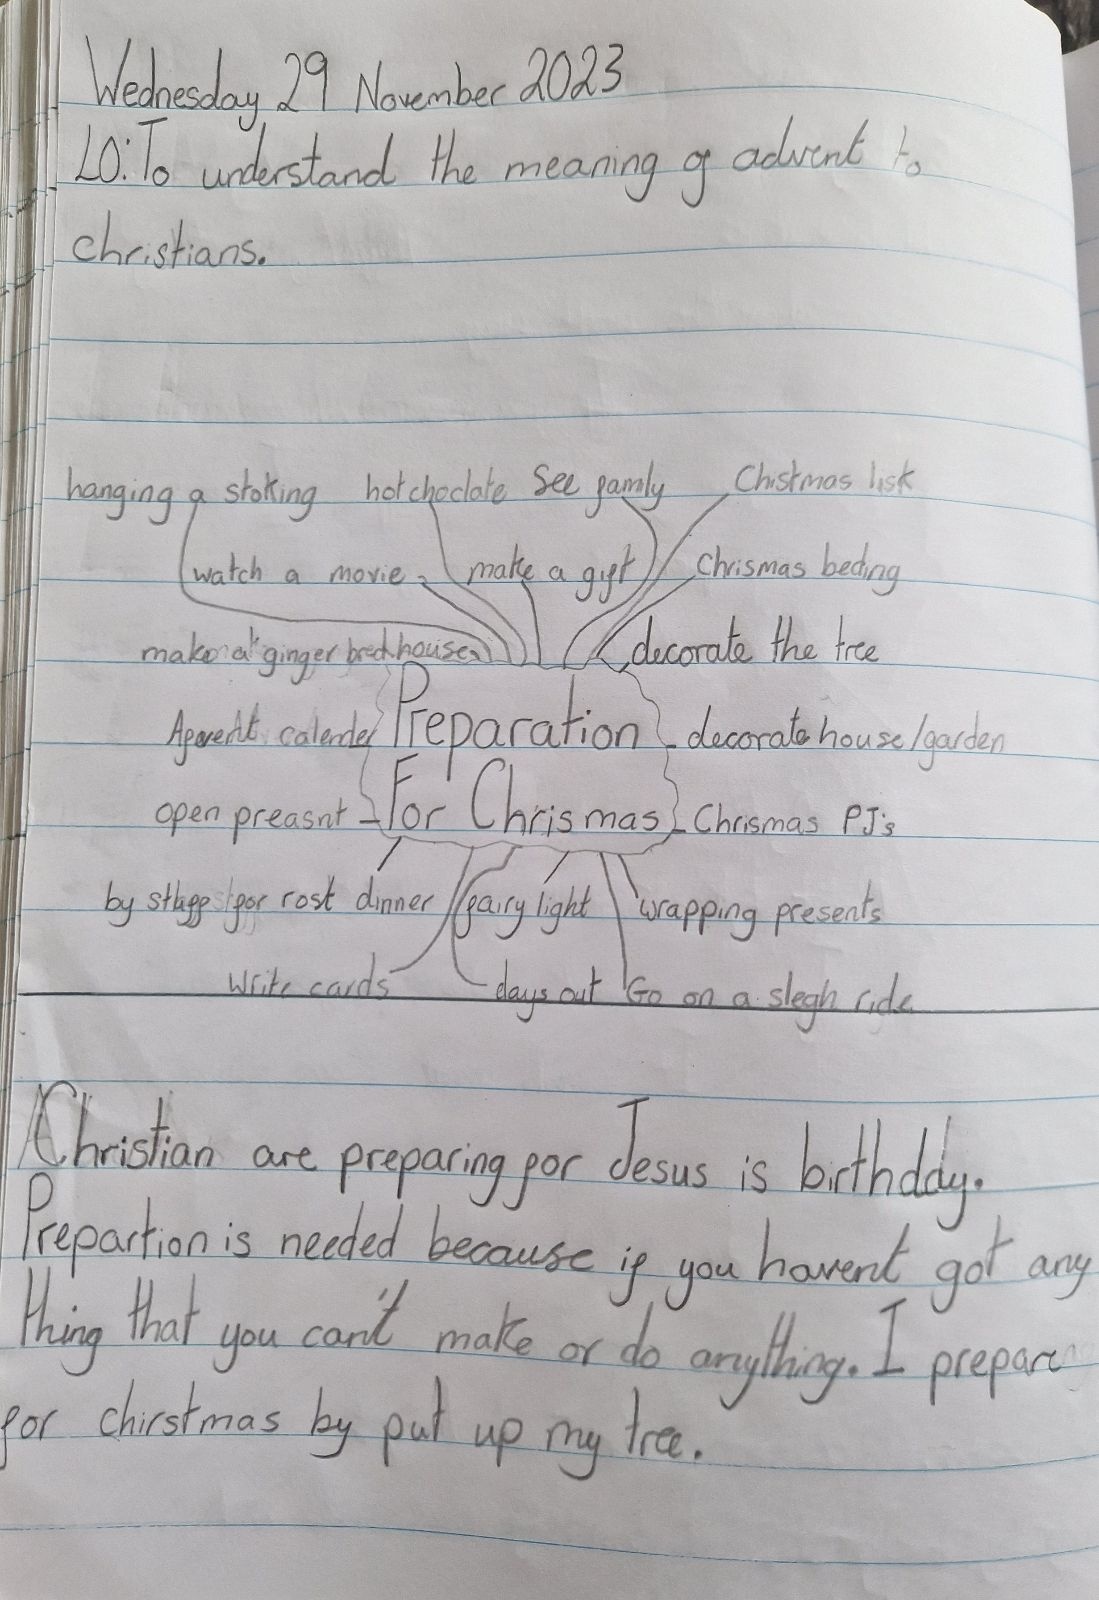 Wednesday 29 November 2023
LO: To understand the meaning of advent to
christians.
hanging a stoking hot choclate See family Chistmas list
watch a movie make a gift Chrismas beding
make a ginger bred house decorate the tree
calender Preparation decorate house/garden
open preasnt For Chrismas Chrismas PJ's
by for rost dinner fairy light wrapping presents
write cards days out Go on a slegh ride
Christian are preparing for Jesus is birthday.
Prepartion is needed because if you havent got any
thing that you can't make or do anything. I prepare
for chirstmas by put up my tree.